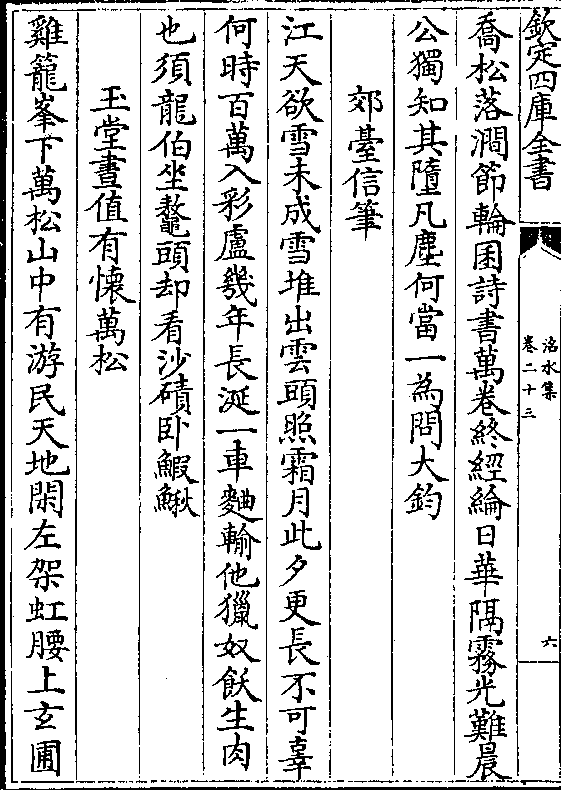 欽定四庫全書
洺水集
卷二十三
六
喬松落澗節輪囷詩書萬卷終經綸日華隔霧光難晨
公獨知其墮凡塵何當一為問大鈞
郊臺信筆
江天欲雪未成雪堆出雲頭照霜月此夕更長不可辜
何時百萬入彩盧幾年長涎一車麯輸他獵奴飫生肉
也須龍伯坐鼇頭却看沙磧卧鰕鰍
玉堂晝值有懷萬松
雞籠峯下萬松山中有游民天地閑左架虹腰上玄圃